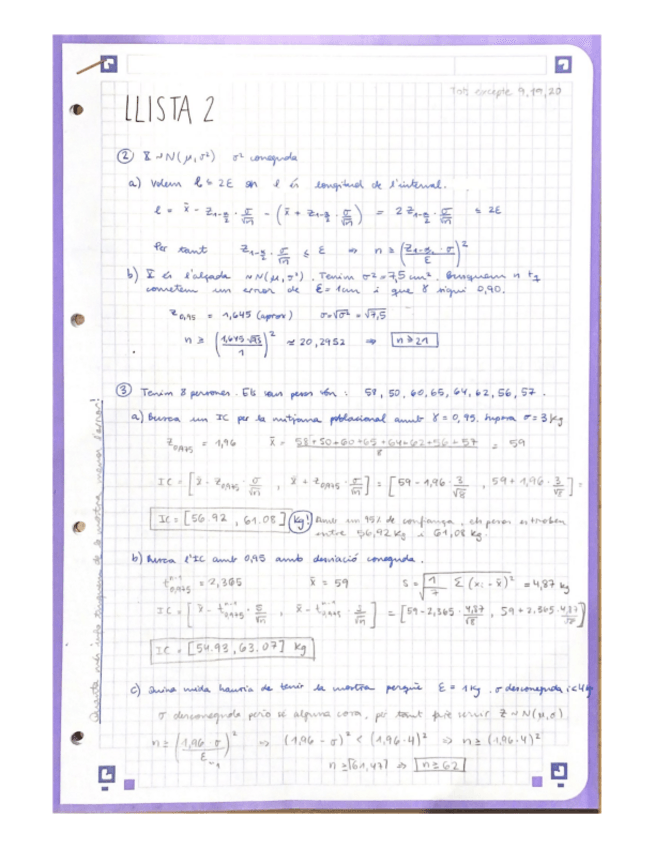 Tots excepte 9, 19, 20
LLISTA 2
② X ~ N(μ, σ²) σ² coneguda
a) Volem l ≤ 2ε on l és longitud de l'interval.
l = x̄ - z₁₋α/₂ · σ/√n - (x̄ + z₁₋α/₂ · σ/√n) = 2 z₁₋α/₂ · σ/√n ≤ 2ε
Per tant z₁₋α/₂ · σ/√n ≤ ε ⇒ n ≥ (z₁₋α/₂ · σ / ε)²
b) X és l'alçada ~ N(μ, σ²). Tenim σ² = 7,5 cm². Busquem n tq
cometem un error de ε = 1cm i que γ sigui 0,90.
z₀,₉₅ = 1,645 (aprox) σ = √σ² = √7,5
n ≥ (1,645 · √7,5 / 1)² ≈ 20,2952 ⇒ n ≥ 21
③ Tenim 8 persones. Els seus pesos són: 58, 50, 60, 65, 64, 62, 56, 57.
a) Busca un IC per la mitjana poblacional amb γ = 0,95. Suposa σ = 3 kg
z₀,₉₇₅ = 1,96 x̄ = (58+50+60+65+64+62+56+57)/8 = 59
IC = [x̄ - z₀,₉₇₅ · σ/√n , x̄ + z₀,₉₇₅ · σ/√n] = [59 - 1,96 · 3/√8 , 59 + 1,96 · 3/√8] =
IC = [56.92, 61.08] kg! Amb un 95% de confiança, els pesos es troben
entre 56,92 kg i 61,08 kg.
b) Busca l'IC amb 0,95 amb desviació coneguda.
tⁿ⁻¹₀,₉₇₅ = 2,365 x̄ = 59 S = √(1/7 Σ(xᵢ - x̄)²) = 4,87 kg
IC = [x̄ - tⁿ⁻¹₀,₉₇₅ · S/√n , x̄ - tⁿ⁻¹₀,₉₇₅ · S/√n] = [59 - 2,365 · 4,87/√8 , 59 + 2,365 · 4,87/√8]
IC = [54.93, 63.07] kg
c) Quina mida hauria de tenir la mostra perquè ε = 1 kg. σ desconeguda i < 4 kg
σ desconeguda però sé alguna cosa, per tant faig servir Z ~ N(μ, σ)
n ≥ (1,96 · σ / ε)² ⇒ (1,96 - σ)² < (1,96 · 4)² ⇒ n ≥ (1,96 · 4)²
=1
n ≥ ⌈61,47⌉ ⇒ n ≥ 62
més info tinguem de la mostra menor